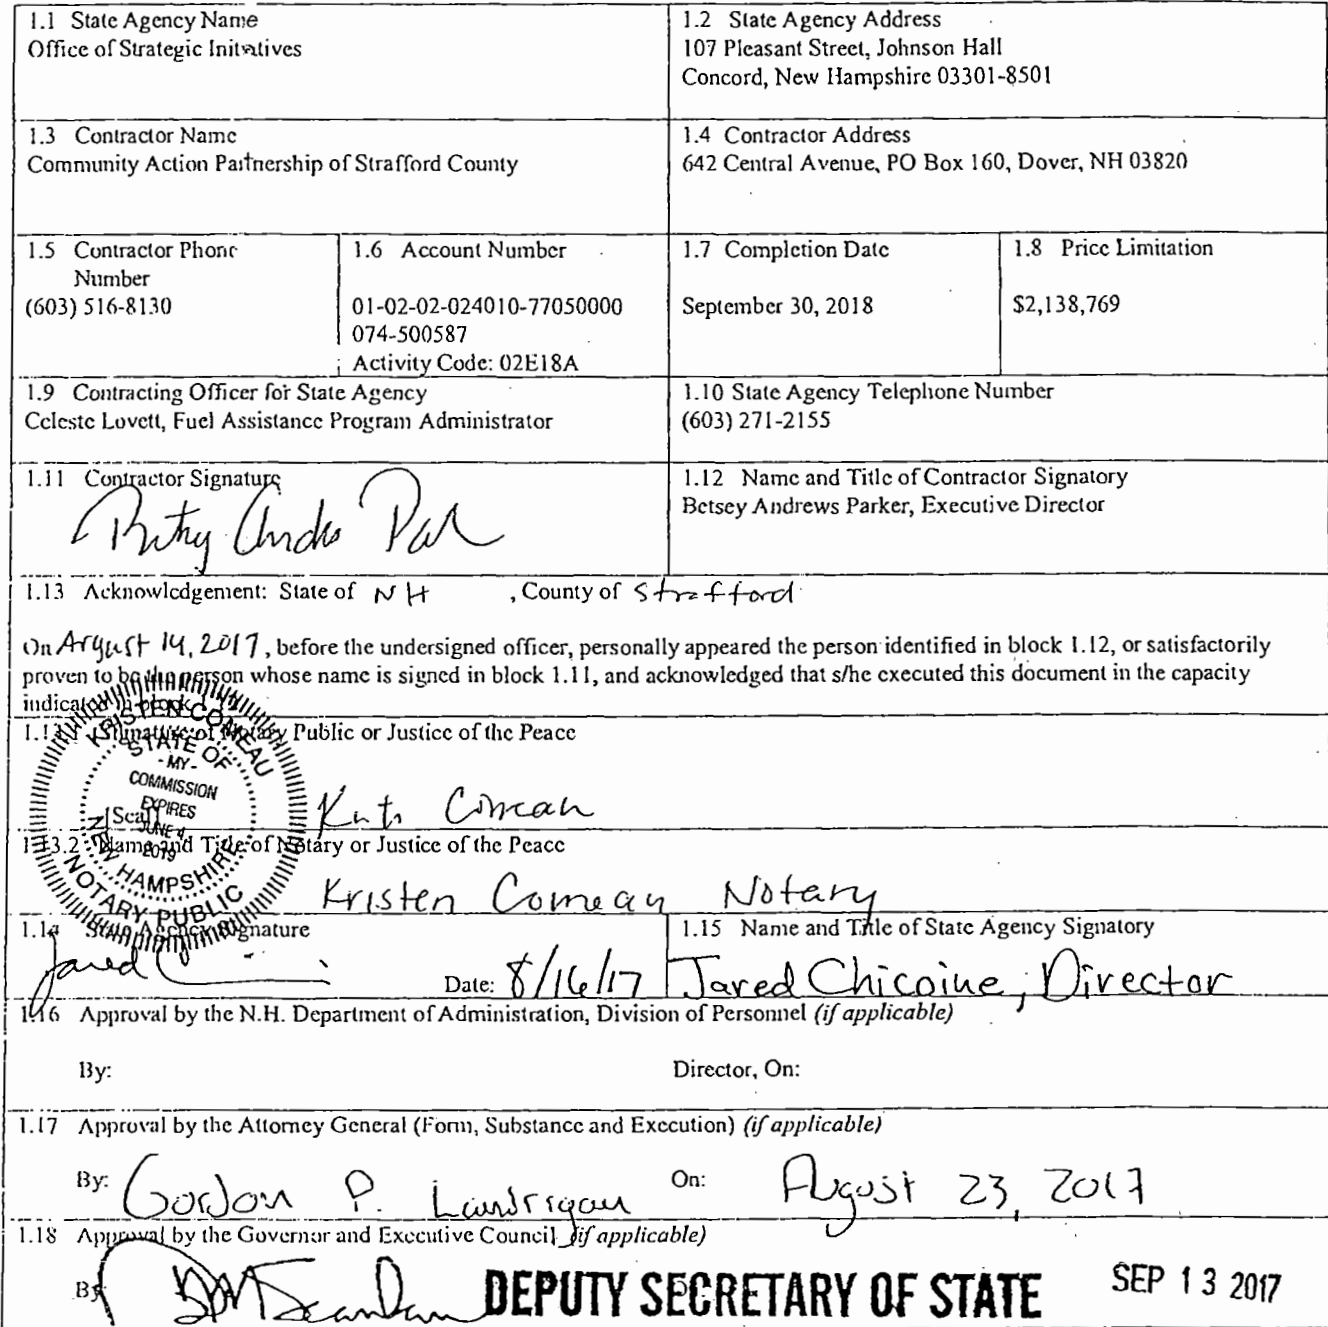 1.1 State Agency Name
Office of Strategic Initiatives
1.2 State Agency Address
107 Pleasant Street, Johnson Hall
Concord, New Hampshire 03301-8501
1.3 Contractor Name
Community Action Partnership of Strafford County
1.4 Contractor Address
642 Central Avenue, PO Box 160, Dover, NH 03820
1.5 Contractor Phone
Number
(603) 516-8130
1.6 Account Number
01-02-02-024010-77050000
074-500587
Activity Code: 02E18A
1.7 Completion Date
September 30, 2018
1.8 Price Limitation
$2,138,769
1.9 Contracting Officer for State Agency
Celeste Lovett, Fuel Assistance Program Administrator
1.10 State Agency Telephone Number
(603) 271-2155
1.11 Contractor Signature
1.12 Name and Title of Contractor Signatory
Betsey Andrews Parker, Executive Director
1.13 Acknowledgement: State of NH , County of Strafford
On August 14, 2017, before the undersigned officer, personally appeared the person identified in block 1.12, or satisfactorily
proven to be the person whose name is signed in block 1.11, and acknowledged that s/he executed this document in the capacity
indicated in block
Signature of Notary Public or Justice of the Peace
KRISTEN COMEAU
STATE OF
- MY -
COMMISSION
EXPIRES
JUNE 4,
2019
NEW HAMPSHIRE
NOTARY PUBLIC
[Seal]
1.13.2 Name and Title of Notary or Justice of the Peace
Kristen Comeau Notary
1.14 State Agency Signature
Jared
Date: 8/16/17
1.15 Name and Title of State Agency Signatory
Jared Chicoine, Director
1.16 Approval by the N.H. Department of Administration, Division of Personnel (if applicable)
By:
Director, On:
1.17 Approval by the Attorney General (Form, Substance and Execution) (if applicable)
By: Gordon P. Landrigan On: August 23, 2017
1.18 Approval by the Governor and Executive Council (if applicable)
By
DEPUTY SECRETARY OF STATE
SEP 13 2017